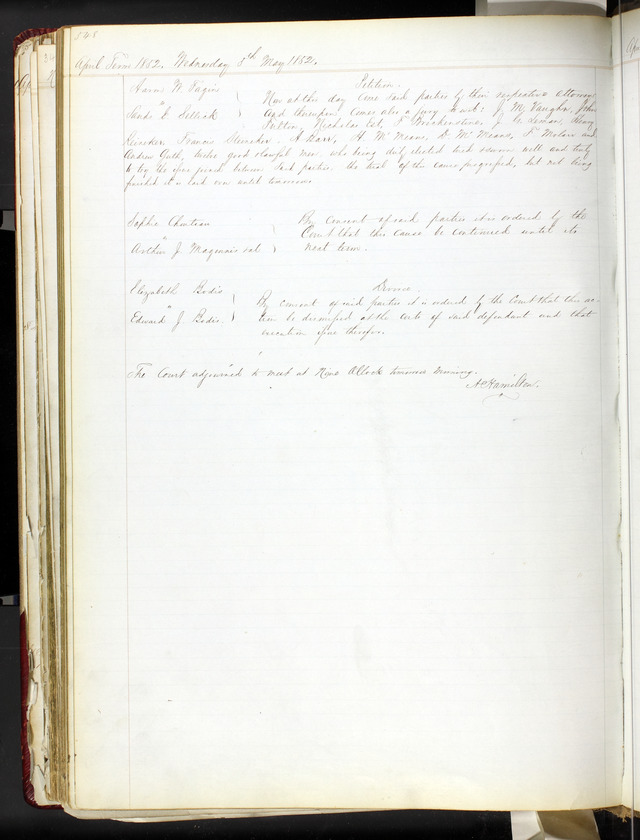 548
April Term 1852. Wednesday 5th May 1852.
Petition
Now at this day come said parties by their respective attorneys
and thereupon comes also a jury to wit: J M Vaughn, John
Nicholas
Francis A Starr, A McMeans, D McMeans, and
Andrew Guth, twelve good & lawful men, who being duly elected tried & sworn well and truly
to try the issue joined between said parties, the trial of this cause progressed, but not being
finished it is laid over until tomorrow
Sophie
vs
Arthur J. Magennis et al
By consent of said parties it is ordered by the
Court that this cause be continued until its
next term.
Elizabeth Bodis
vs
Edward J. Bodis
Divorce
By consent of said parties it is ordered by the Court that this ac-
tion be dismissed at the costs of said defendant and that
execution issue therefor.
The Court adjourned to meet at Nine O'Clock tomorrow Morning.
A Hamilton.